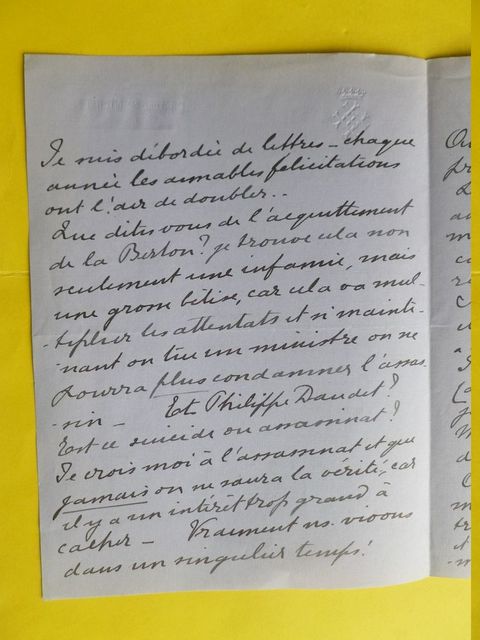 Je suis débordée de lettres – chaque
année les aimables félicitations
ont l'air de doubler..
Que dites vous de l'acquittement
de la Berton? je trouve cela non
seulement une infamie, mais
une grosse bêtise, car cela va mul-
-tiplier les attentats et si mainte-
-nant on tue un ministre on ne
pourra plus condamner l'assas-
-sin – Et Philippe Daudet?
Est ce suicide ou assassinat?
Je crois moi à l'assassinat et que
jamais on ne saura la vérité, car
il y a un intérêt trop grand à
cacher – Vraiment ns. vivons
dans un singulier temps!